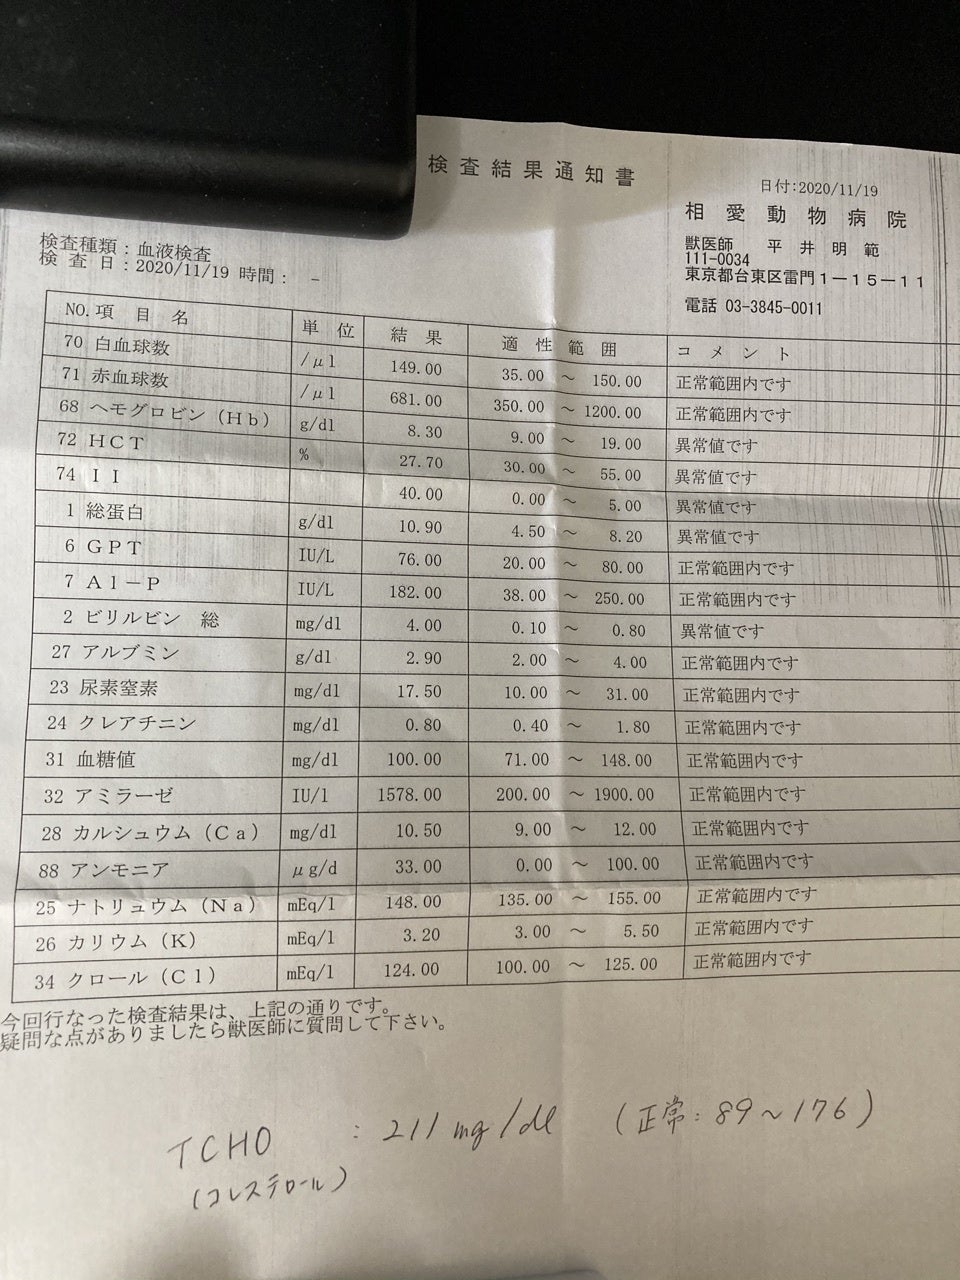 検査結果通知書
日付:2020/11/19
相愛動物病院
獣医師 平井明範
111-0034
東京都台東区雷門1-15-11
電話 03-3845-0011
検査種類:血液検査
検査日:2020/11/19 時間: -
NO.項目名 単位 結果 適性範囲 コメント
70 白血球数 /μl 149.00 35.00 ~ 150.00 正常範囲内です
71 赤血球数 /μl 681.00 350.00 ~ 1200.00 正常範囲内です
68 ヘモグロビン(Hb) g/dl 8.30 9.00 ~ 19.00 異常値です
72 HCT % 27.70 30.00 ~ 55.00 異常値です
74 II 40.00 0.00 ~ 5.00 異常値です
1 総蛋白 g/dl 10.90 4.50 ~ 8.20 異常値です
6 GPT IU/L 76.00 20.00 ~ 80.00 正常範囲内です
7 Al-P IU/L 182.00 38.00 ~ 250.00 正常範囲内です
2 ビリルビン 総 mg/dl 4.00 0.10 ~ 0.80 異常値です
27 アルブミン g/dl 2.90 2.00 ~ 4.00 正常範囲内です
23 尿素窒素 mg/dl 17.50 10.00 ~ 31.00 正常範囲内です
24 クレアチニン mg/dl 0.80 0.40 ~ 1.80 正常範囲内です
31 血糖値 mg/dl 100.00 71.00 ~ 148.00 正常範囲内です
32 アミラーゼ IU/l 1578.00 200.00 ~ 1900.00 正常範囲内です
28 カルシュウム(Ca) mg/dl 10.50 9.00 ~ 12.00 正常範囲内です
88 アンモニア μg/d 33.00 0.00 ~ 100.00 正常範囲内です
25 ナトリュウム(Na) mEq/l 148.00 135.00 ~ 155.00 正常範囲内です
26 カリウム(K) mEq/l 3.20 3.00 ~ 5.50 正常範囲内です
34 クロール(Cl) mEq/l 124.00 100.00 ~ 125.00 正常範囲内です
今回行なった検査結果は、上記の通りです。
疑問な点がありましたら獣医師に質問して下さい。
TCHO : 211 mg/dl (正常: 89~176)
(コレステロール)